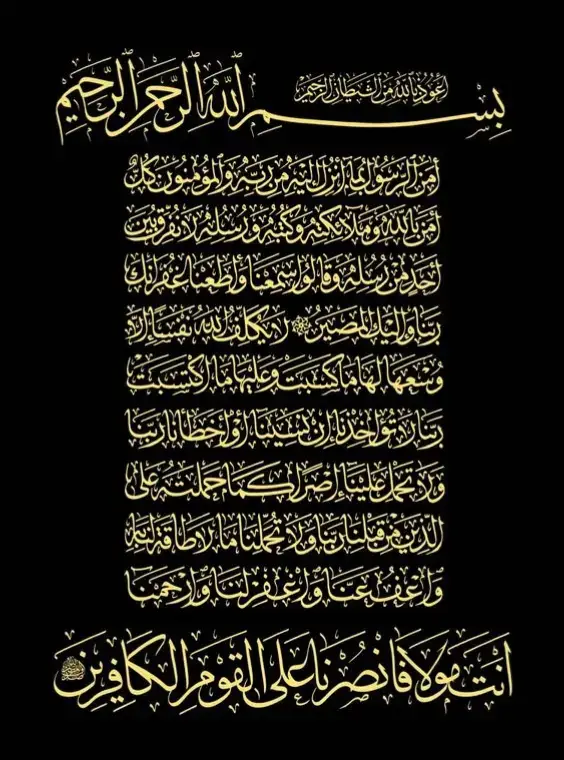 اعوذ بالله من الشيطان الرجيم
بسم الله الرحمن الرحيم
آمن الرسول بما أنزل إليه من ربه والمؤمنون كل
آمن بالله وملائكته وكتبه ورسله لا نفرق بين
أحد من رسله وقالوا سمعنا وأطعنا غفرانك
ربنا وإليك المصير لا يكلف الله نفسا إلا
وسعها لها ما كسبت وعليها ما اكتسبت
ربنا لا تؤاخذنا إن نسينا أو أخطأنا ربنا
ولا تحمل علينا إصرا كما حملته على
الذين من قبلنا ربنا ولا تحملنا ما لا طاقة لنا به
واعف عنا واغفر لنا وارحمنا
أنت مولانا فانصرنا على القوم الكافرين